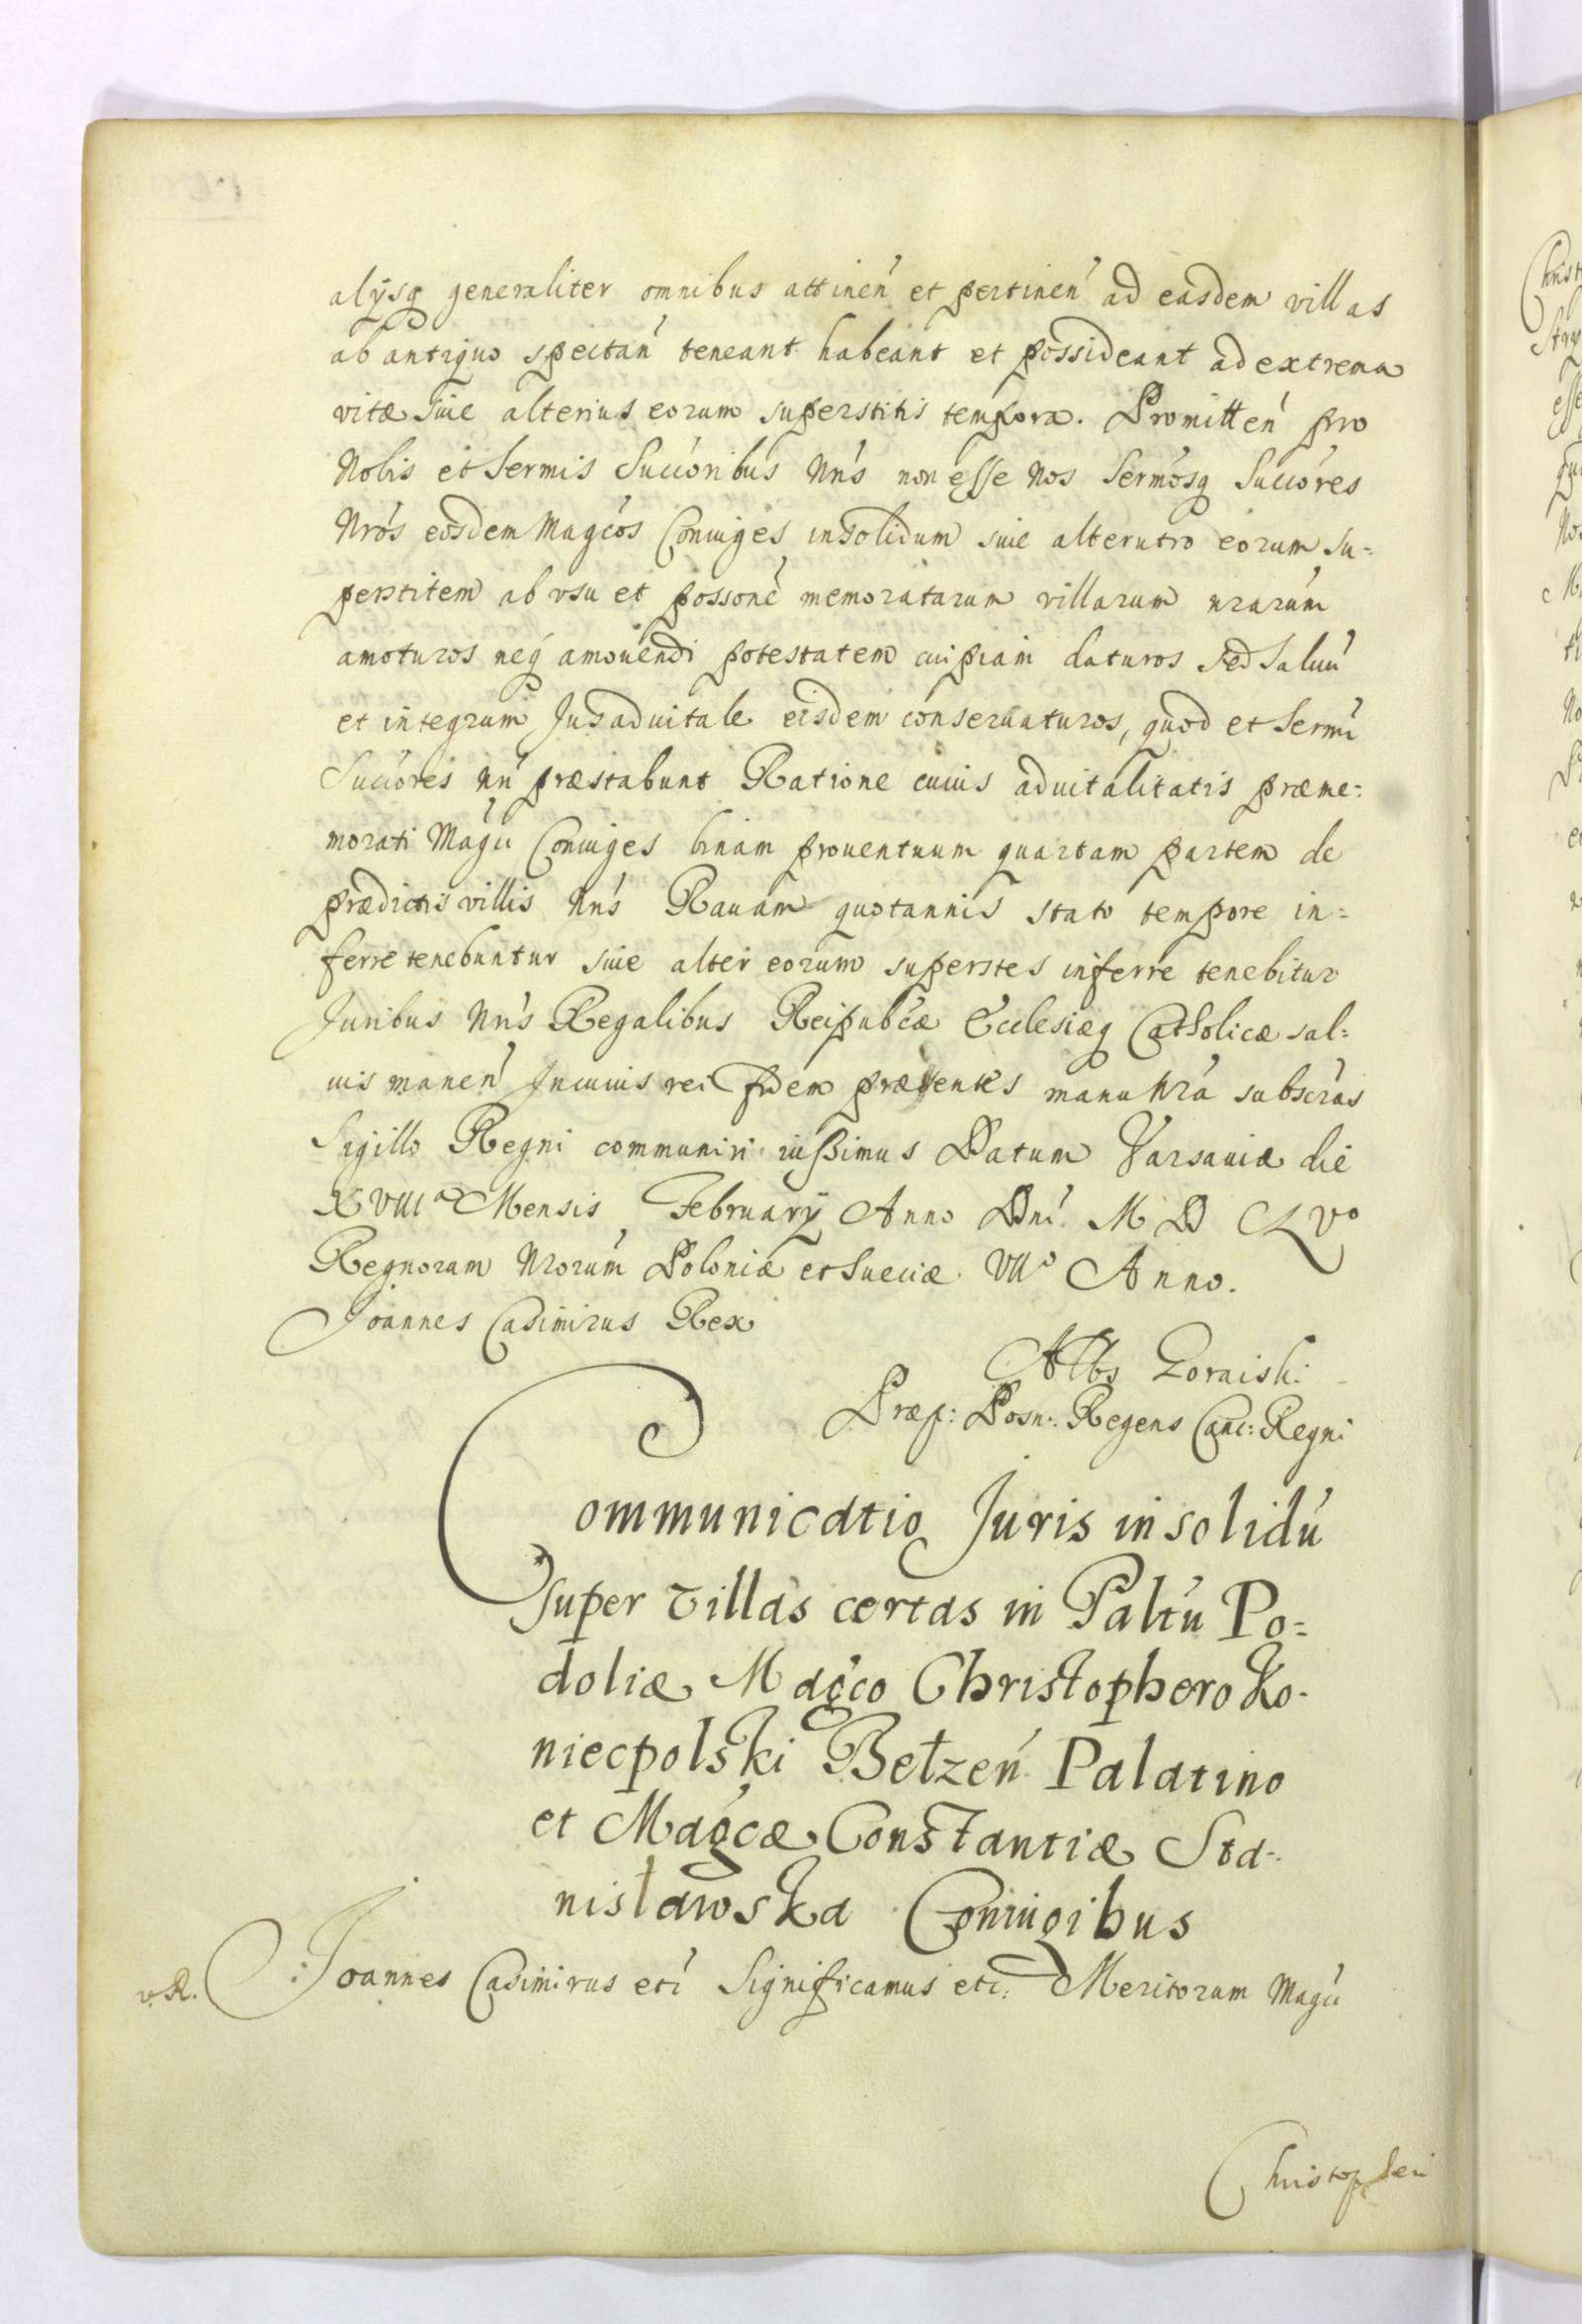 alÿsq generaliter omnibus attineń et pertineń ad easdem villas
ab antiquo spectań teneant habeant et possideant ad extrema
vitæ siue alterius eorum superstitis tempora. Promitteń pro
Nobis et Sermis Succoribus Nrís non esse Nos Sermosq Succores
Nros eosdem Magcos Coniuges insolidum siue alterutro eorum su=
perstitem ab vsu et possone memoratarum villarum nrarum
amoturos neq amouendi potestatem cuipiam daturos sed saluū
et integrum Jus aduitale eisdem conseruaturos, quod et Sermi
Succores nri præstabunt Ratione cuius aduitalitatis præme=
morati Magci Coniuges binam prouentuum quartam partem de
prædictis villis Nrís Rauam quotannis stato tempore in=
ferre tenebuntur siue alter eorum superstes inferre tenebitur
Juribus Nrís Regalibus Reipubcæ Ecclesiæq Catholicæ sal=
uis maneń In cuius rei fidem præsentes manu Nrá subscras
Sigillo Regni communiri iussimus Datum Varsauiæ die
XVIIIa Mensis Februarÿ Anno Dní M D C L Vo
Regnorum Nrorum Poloniæ et Sueciæ VIIo Anno.
Joannes Casimirus Rex
Albs Goraiski
Præp: Posn: Regens Canc: Regni
Communicatio Juris in solidú
super villas certas in Paltu Po=
doliæ Magco Christophoro Ko-
niecpolski Bełzeń Palatino
et Magcæ Constantiæ Sta-
nisławska Coniugibus
v.R. Joannes Casimirus etć Significamus etc: Meritorum Magci
Christopheri